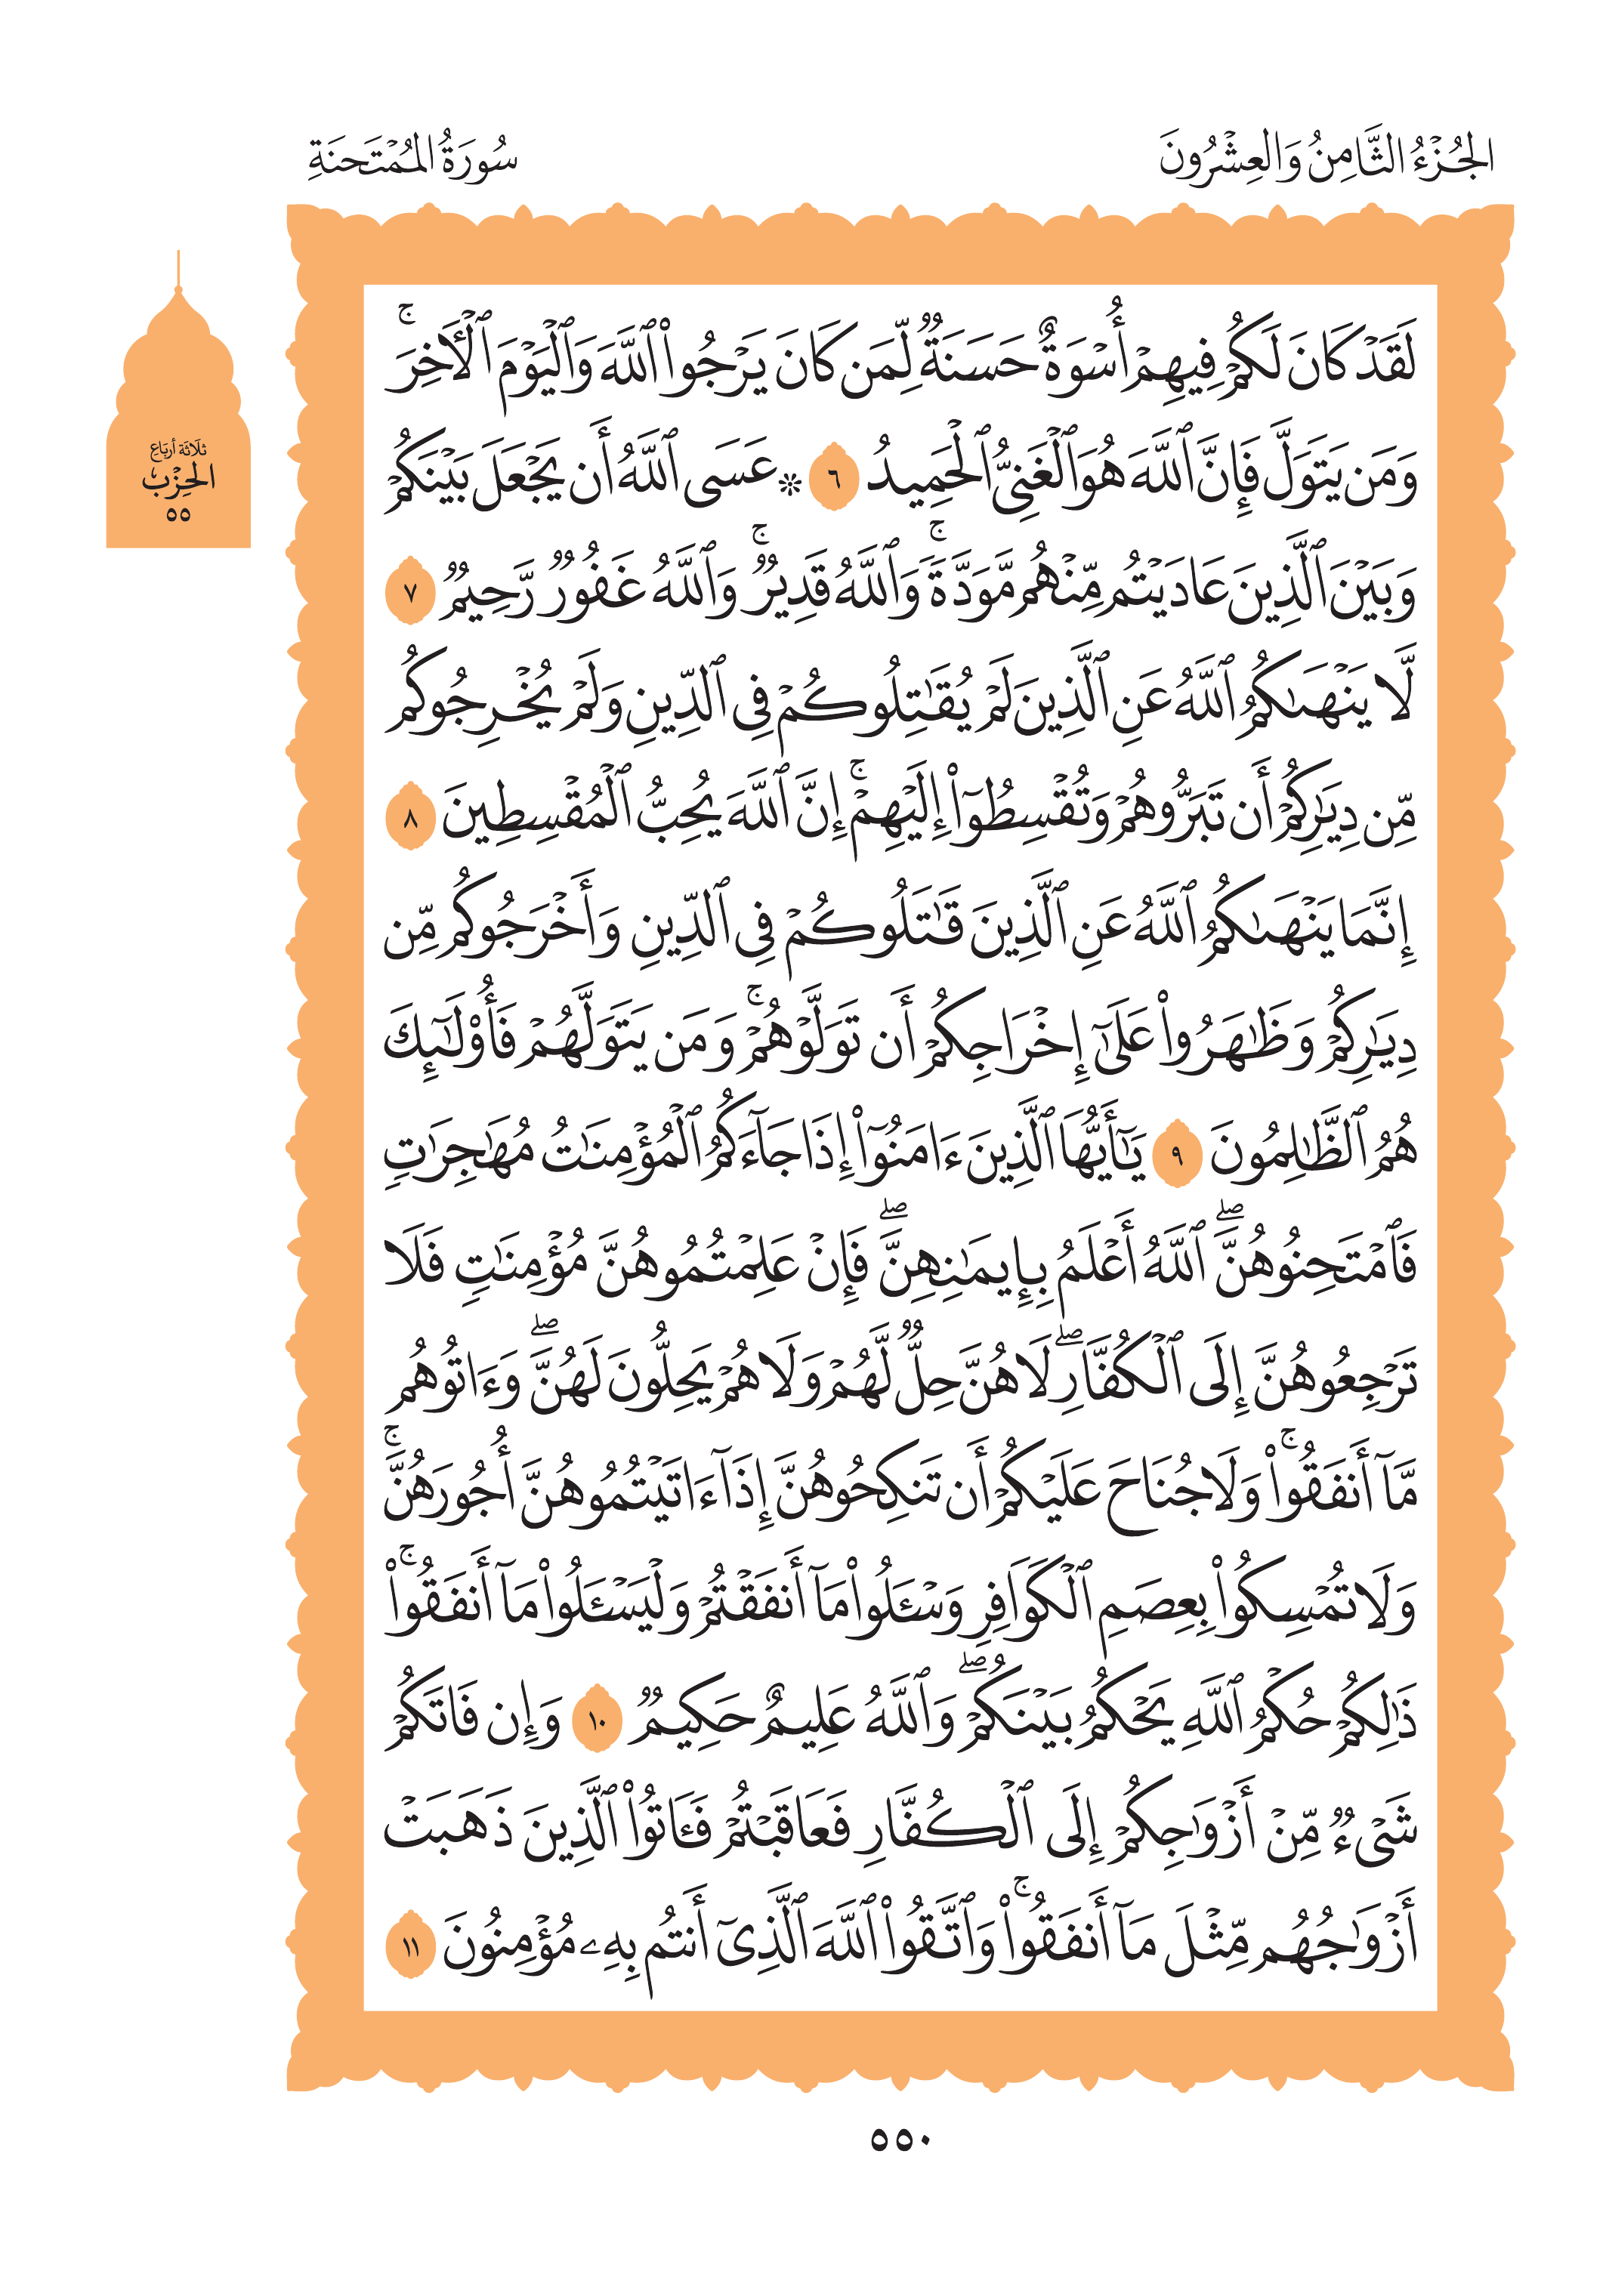 الجُزْءُ الثَّامِنُ وَالعِشْرُونَ
سُورَةُ المُمْتَحنَةِ
ثلَاثة أربَاع
الحِزْب
٥٥
لَقَدۡ كَانَ لَكُمۡ فِيهِمۡ أُسۡوَةٌ حَسَنَةٞ لِّمَن كَانَ يَرۡجُواْ ٱللَّهَ وَٱلۡيَوۡمَ ٱلۡأٓخِرَۚ
وَمَن يَتَوَلَّ فَإِنَّ ٱللَّهَ هُوَ ٱلۡغَنِيُّ ٱلۡحَمِيدُ ٦ ۞ عَسَى ٱللَّهُ أَن يَجۡعَلَ بَيۡنَكُمۡ
وَبَيۡنَ ٱلَّذِينَ عَادَيۡتُم مِّنۡهُم مَّوَدَّةٗۚ وَٱللَّهُ قَدِيرٞۚ وَٱللَّهُ غَفُورٞ رَّحِيمٞ ٧
لَّا يَنۡهَىٰكُمُ ٱللَّهُ عَنِ ٱلَّذِينَ لَمۡ يُقَٰتِلُوكُمۡ فِي ٱلدِّينِ وَلَمۡ يُخۡرِجُوكُم
مِّن دِيَٰرِكُمۡ أَن تَبَرُّوهُمۡ وَتُقۡسِطُوٓاْ إِلَيۡهِمۡۚ إِنَّ ٱللَّهَ يُحِبُّ ٱلۡمُقۡسِطِينَ ٨
إِنَّمَا يَنۡهَىٰكُمُ ٱللَّهُ عَنِ ٱلَّذِينَ قَٰتَلُوكُمۡ فِي ٱلدِّينِ وَأَخۡرَجُوكُم مِّن
دِيَٰرِكُمۡ وَظَٰهَرُواْ عَلَىٰٓ إِخۡرَاجِكُمۡ أَن تَوَلَّوۡهُمۡۚ وَمَن يَتَوَلَّهُمۡ فَأُوْلَٰٓئِكَ
هُمُ ٱلظَّٰلِمُونَ ٩ يَٰٓأَيُّهَا ٱلَّذِينَ ءَامَنُوٓاْ إِذَا جَآءَكُمُ ٱلۡمُؤۡمِنَٰتُ مُهَٰجِرَٰتٖ
فَٱمۡتَحِنُوهُنَّۖ ٱللَّهُ أَعۡلَمُ بِإِيمَٰنِهِنَّۖ فَإِنۡ عَلِمۡتُمُوهُنَّ مُؤۡمِنَٰتٖ فَلَا
تَرۡجِعُوهُنَّ إِلَى ٱلۡكُفَّارِۖ لَا هُنَّ حِلّٞ لَّهُمۡ وَلَا هُمۡ يَحِلُّونَ لَهُنَّۖ وَءَاتُوهُم
مَّآ أَنفَقُواْۚ وَلَا جُنَاحَ عَلَيۡكُمۡ أَن تَنكِحُوهُنَّ إِذَآ ءَاتَيۡتُمُوهُنَّ أُجُورَهُنَّۚ
وَلَا تُمۡسِكُواْ بِعِصَمِ ٱلۡكَوَافِرِ وَسۡـَٔلُواْ مَآ أَنفَقۡتُمۡ وَلۡيَسۡـَٔلُواْ مَآ أَنفَقُواْۚ
ذَٰلِكُمۡ حُكۡمُ ٱللَّهِ يَحۡكُمُ بَيۡنَكُمۡۖ وَٱللَّهُ عَلِيمٌ حَكِيمٞ ١٠ وَإِن فَاتَكُمۡ
شَيۡءٞ مِّنۡ أَزۡوَٰجِكُمۡ إِلَى ٱلۡكُفَّارِ فَعَاقَبۡتُمۡ فَـَٔاتُواْ ٱلَّذِينَ ذَهَبَتۡ
أَزۡوَٰجُهُم مِّثۡلَ مَآ أَنفَقُواْۚ وَٱتَّقُواْ ٱللَّهَ ٱلَّذِيٓ أَنتُم بِهِۦ مُؤۡمِنُونَ ١١
٥٥٠